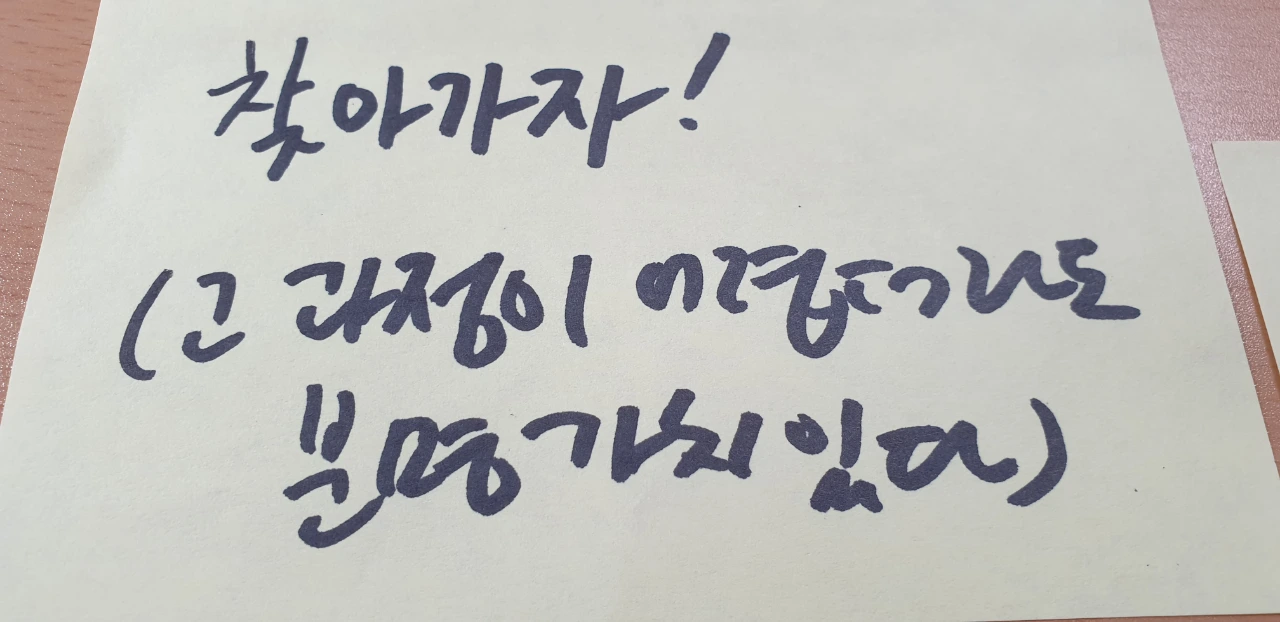 찾아가자!
(그 과정이 어렵더라도
분명 가치 있다)